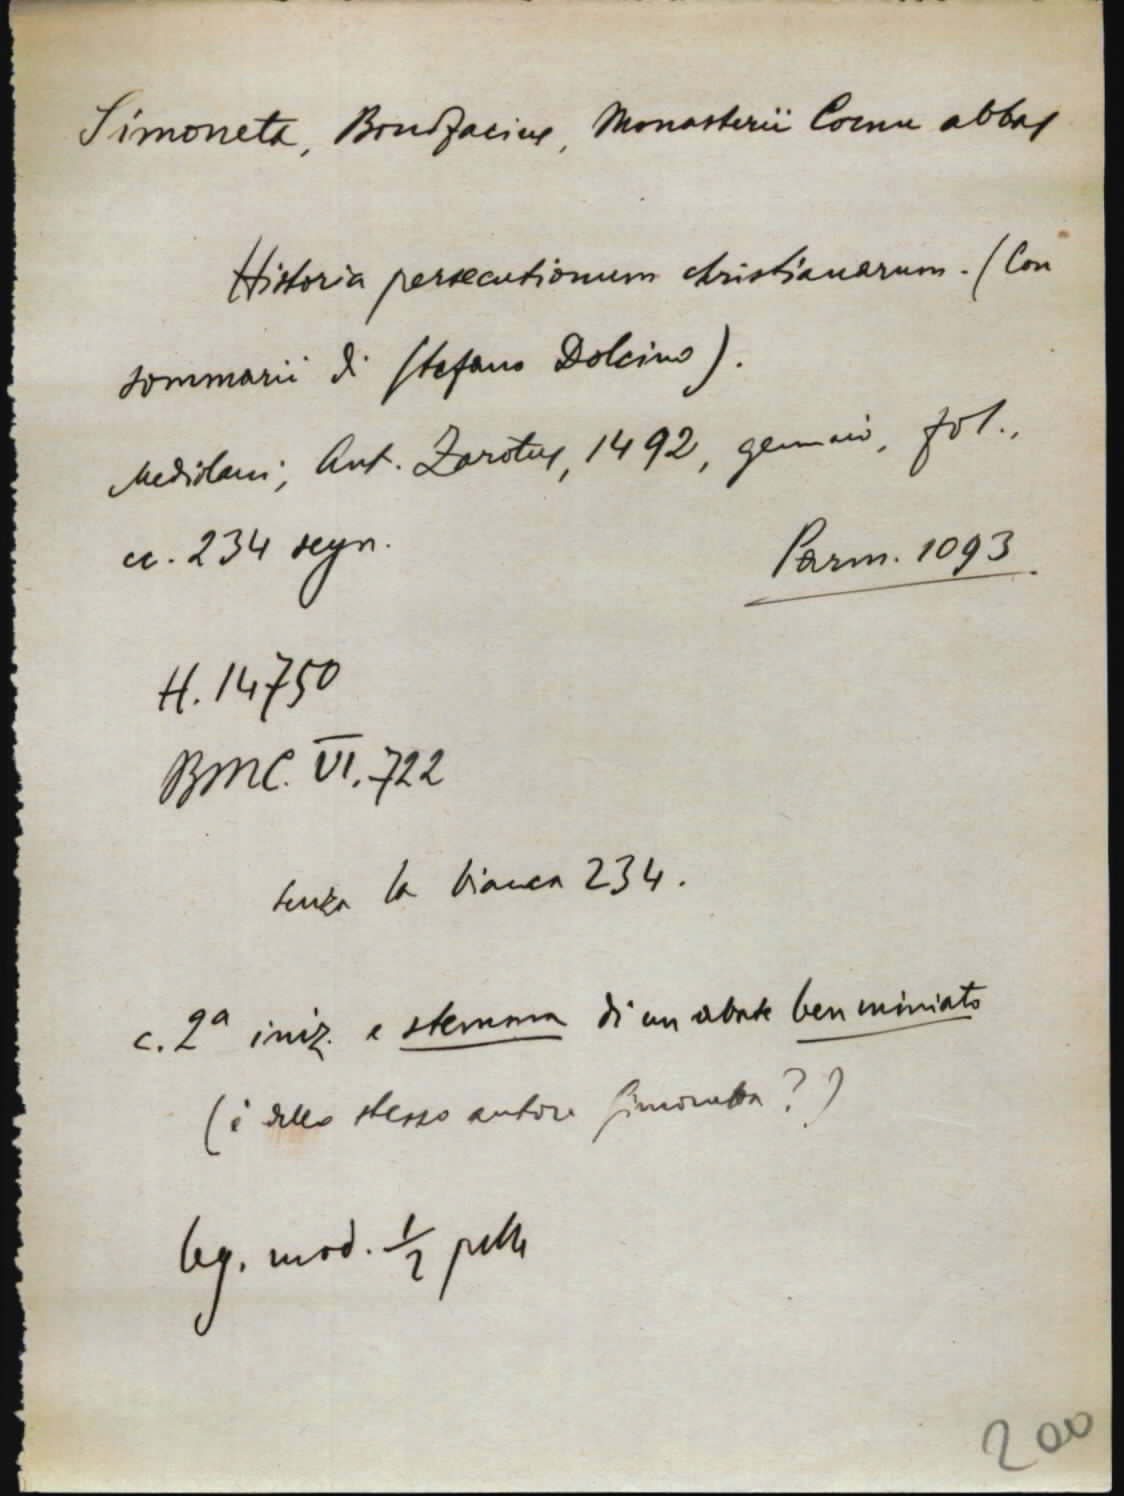 Simoneta, Bonifacius, Monasterii Cornu abbas
Historia persecutionum christianarum. (Con
sommarii di Stefano Dolcino).
Mediolani, Ant. Zarotus, 1492, gennaio, fol.,
cc. 234 segn.
Parm. 1093.
H. 14750
BMC. VI. 722
senza la bianca 234.
c. 2ª iniz. e stemma di un abate ben miniato
(è dello stesso autore Simonetta?)
leg. mod. 1/2 pelle
200